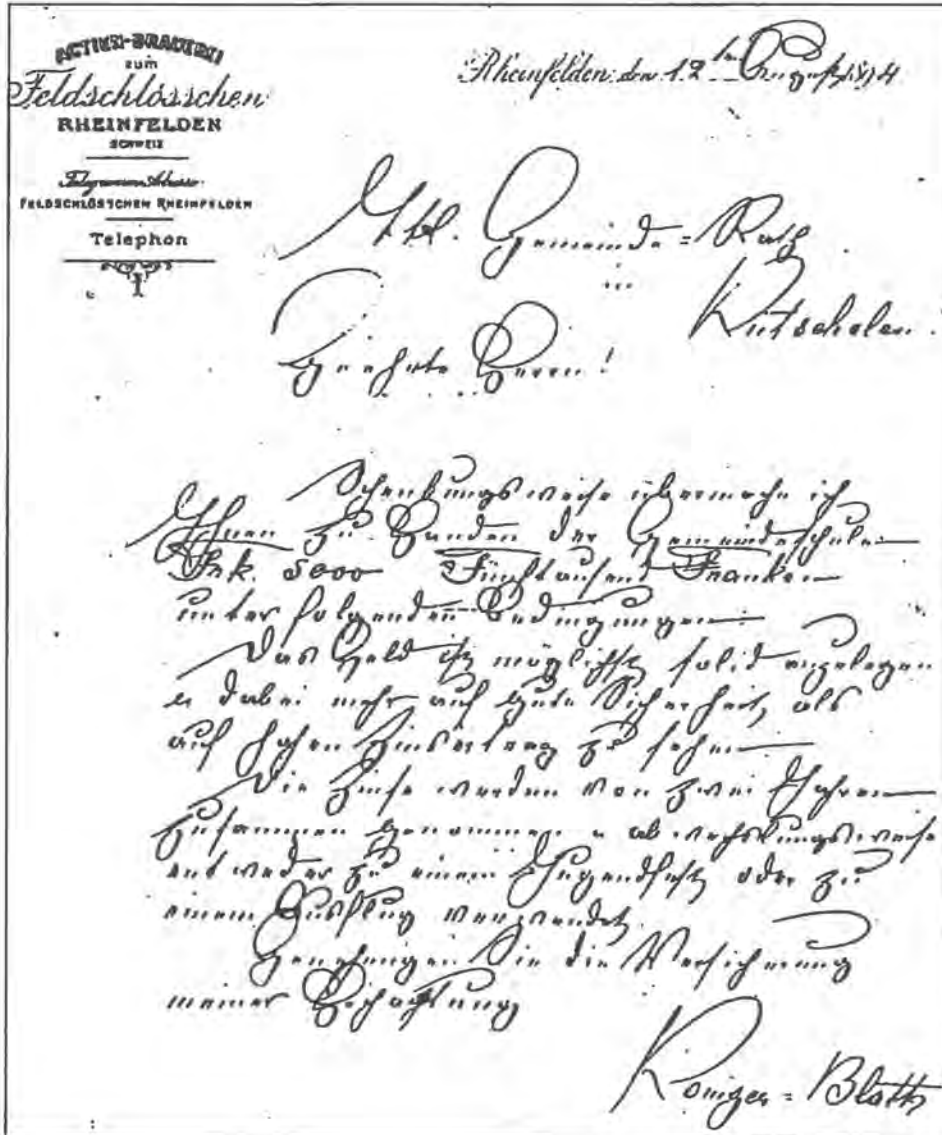 ACTIEN-BRAUEREI
zum
Feldschlösschen
RHEINFELDEN
SCHWEIZ
Telegramm-Adresse:
FELDSCHLÖSSCHEN RHEINFELDEN
Telephon
Rheinfelden, den 12ten August 1914
Gemeinde=Rath
Rütschelen.
Geehrte Herren!
Schenkungsweise übermache ich
Ihnen zu Handen der Gemeindeschule
Frk. 5000 Fünftausend Franken
unter folgenden Bedingungen
Das Geld ist möglichst solid anzulegen
u dabei mehr auf gute Sicherheit, als
auf hohen Zinsertrag zu sehen
Die Zinse werden von zwei Jahren
zusammen genommen u abwechslungsweise
entweder zu einem Jugendfest, oder zu
einem Ausflug verwendet.
Genehmigen Sie die Versicherung
meiner Hochachtung
Roniger=